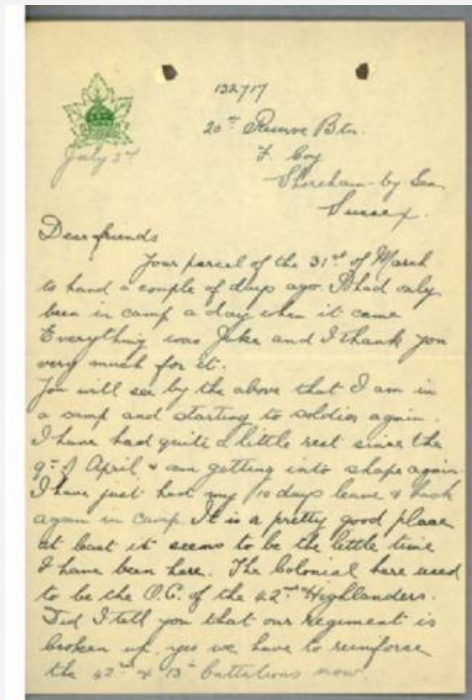 132717
20th Reserve Btn.
F. Coy
Shoreham-by-Sea
Sussex.
July 27
Dear friends
Your parcel of the 31st of March
to hand a couple of days ago. I had only
been in camp a day when it came
Everything was Jake and I thank you
very much for it.
You will see by the above that I am in
a camp and starting to soldier again.
I have had quite a little rest since the
9th of April & am getting into shape again
I have just had my 10 days leave & back
again in camp. It is a pretty good place
at least it seems to be the little time
I have been here. The Colonial here used
to be the O.C. of the 42nd Highlanders.
Did I tell you that our regiment is
broken up. yes we have to reinforce
the 42nd & 13th battalions now.